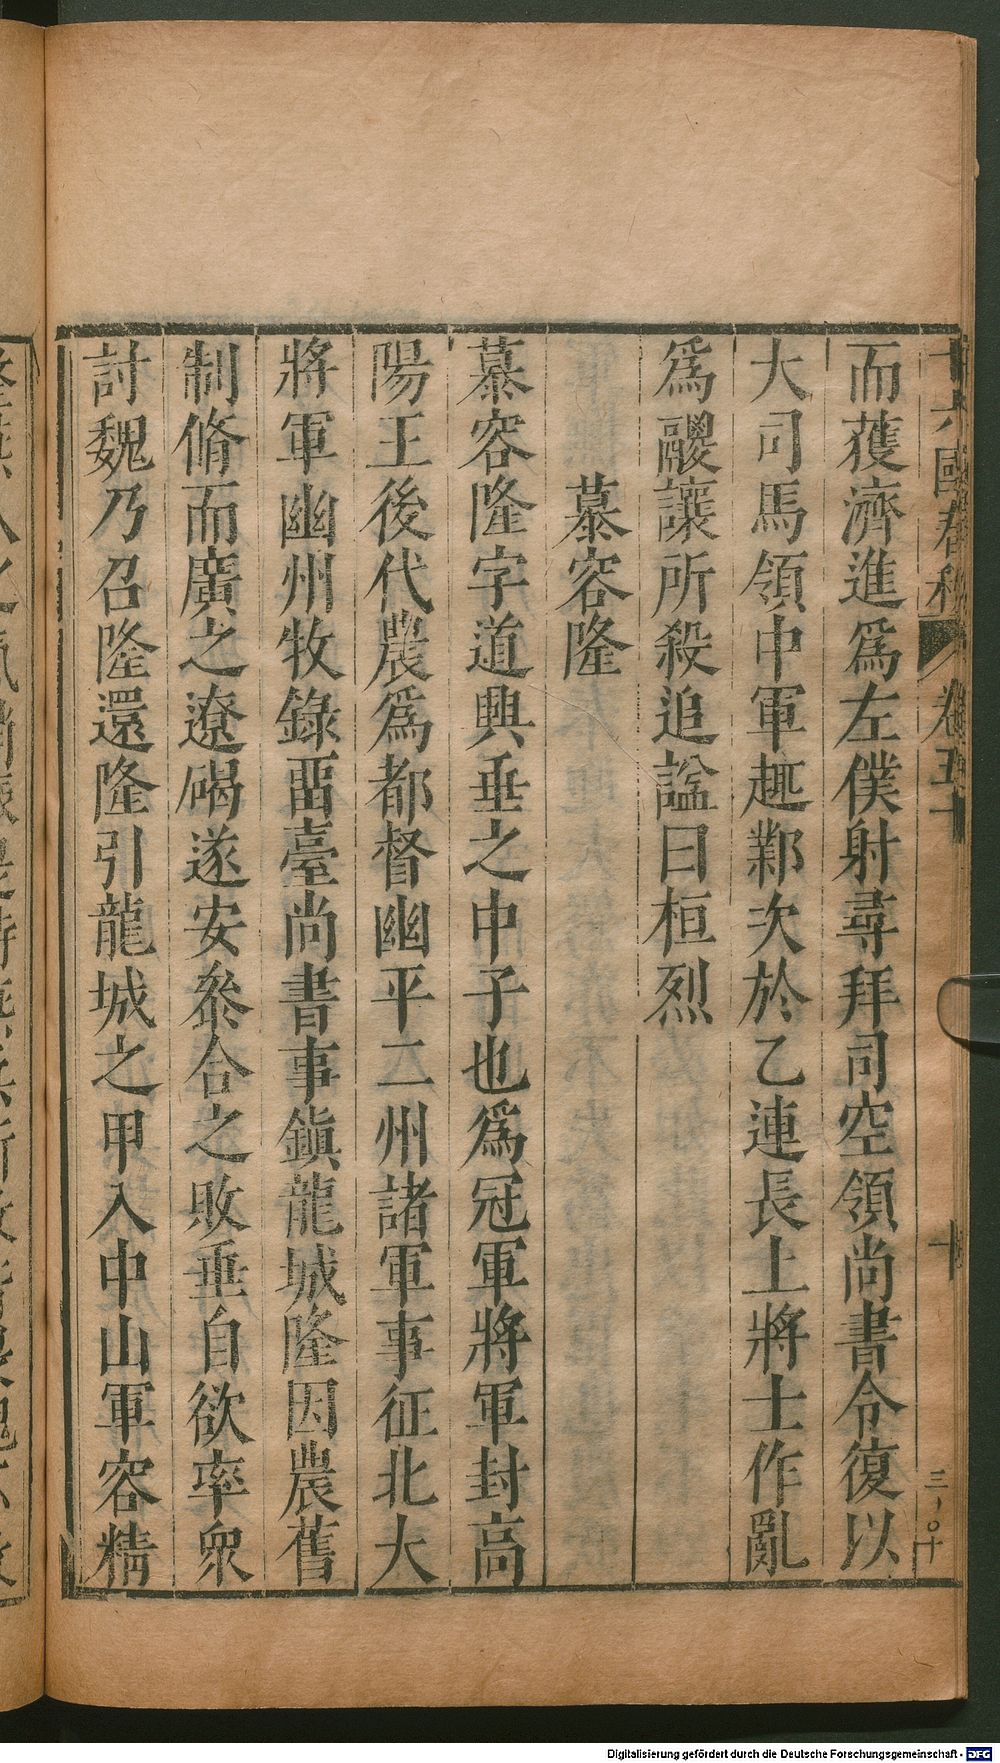 十六國春秋
卷五十
十
三〇十
而獲濟進爲左僕射尋拜司空領尚書令復以
大司馬領中軍趣鄴次於乙連長上將士作亂
爲段讓所殺追謚曰桓烈
慕容隆
慕容隆字道興垂之中子也爲冠軍將軍封高
陽王後代農爲都督幽平二州諸軍事征北大
將軍幽州牧錄畱臺尚書事鎭龍城隆因農舊
制脩而廣之遼碣遂安叅合之敗垂自欲率衆
討魏乃召隆還隆引龍城之甲入中山軍容精
Digitalisierung gefördert durch die Deutsche Forschungsgemeinschaft - DFG